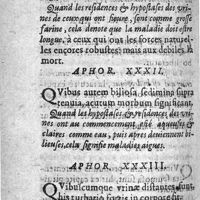 Quand les residences & hypostases des vri-
nes de ceux qui ont fieure, sont comme grosse
farine, cela denote que la maladie doit estre
longue, à ceux qui ont les forces naturel-
les encores robustes: mais aux debiles, la
mort.
APHOR. XXXII.
QVibus autem biliosa sedimina supra
tenuia, acutum morbum significant.
Quand les hypostases & residences des vri-
nes ont au commencement esté aqueuses &
claires comme eau, puis apres deuiennent
bilieuses, cela signifie maladies aigues.
APHOR. XXXIII.
QVibuscumque vrinæ distantes, sunt
his turbatio fortis in corpore